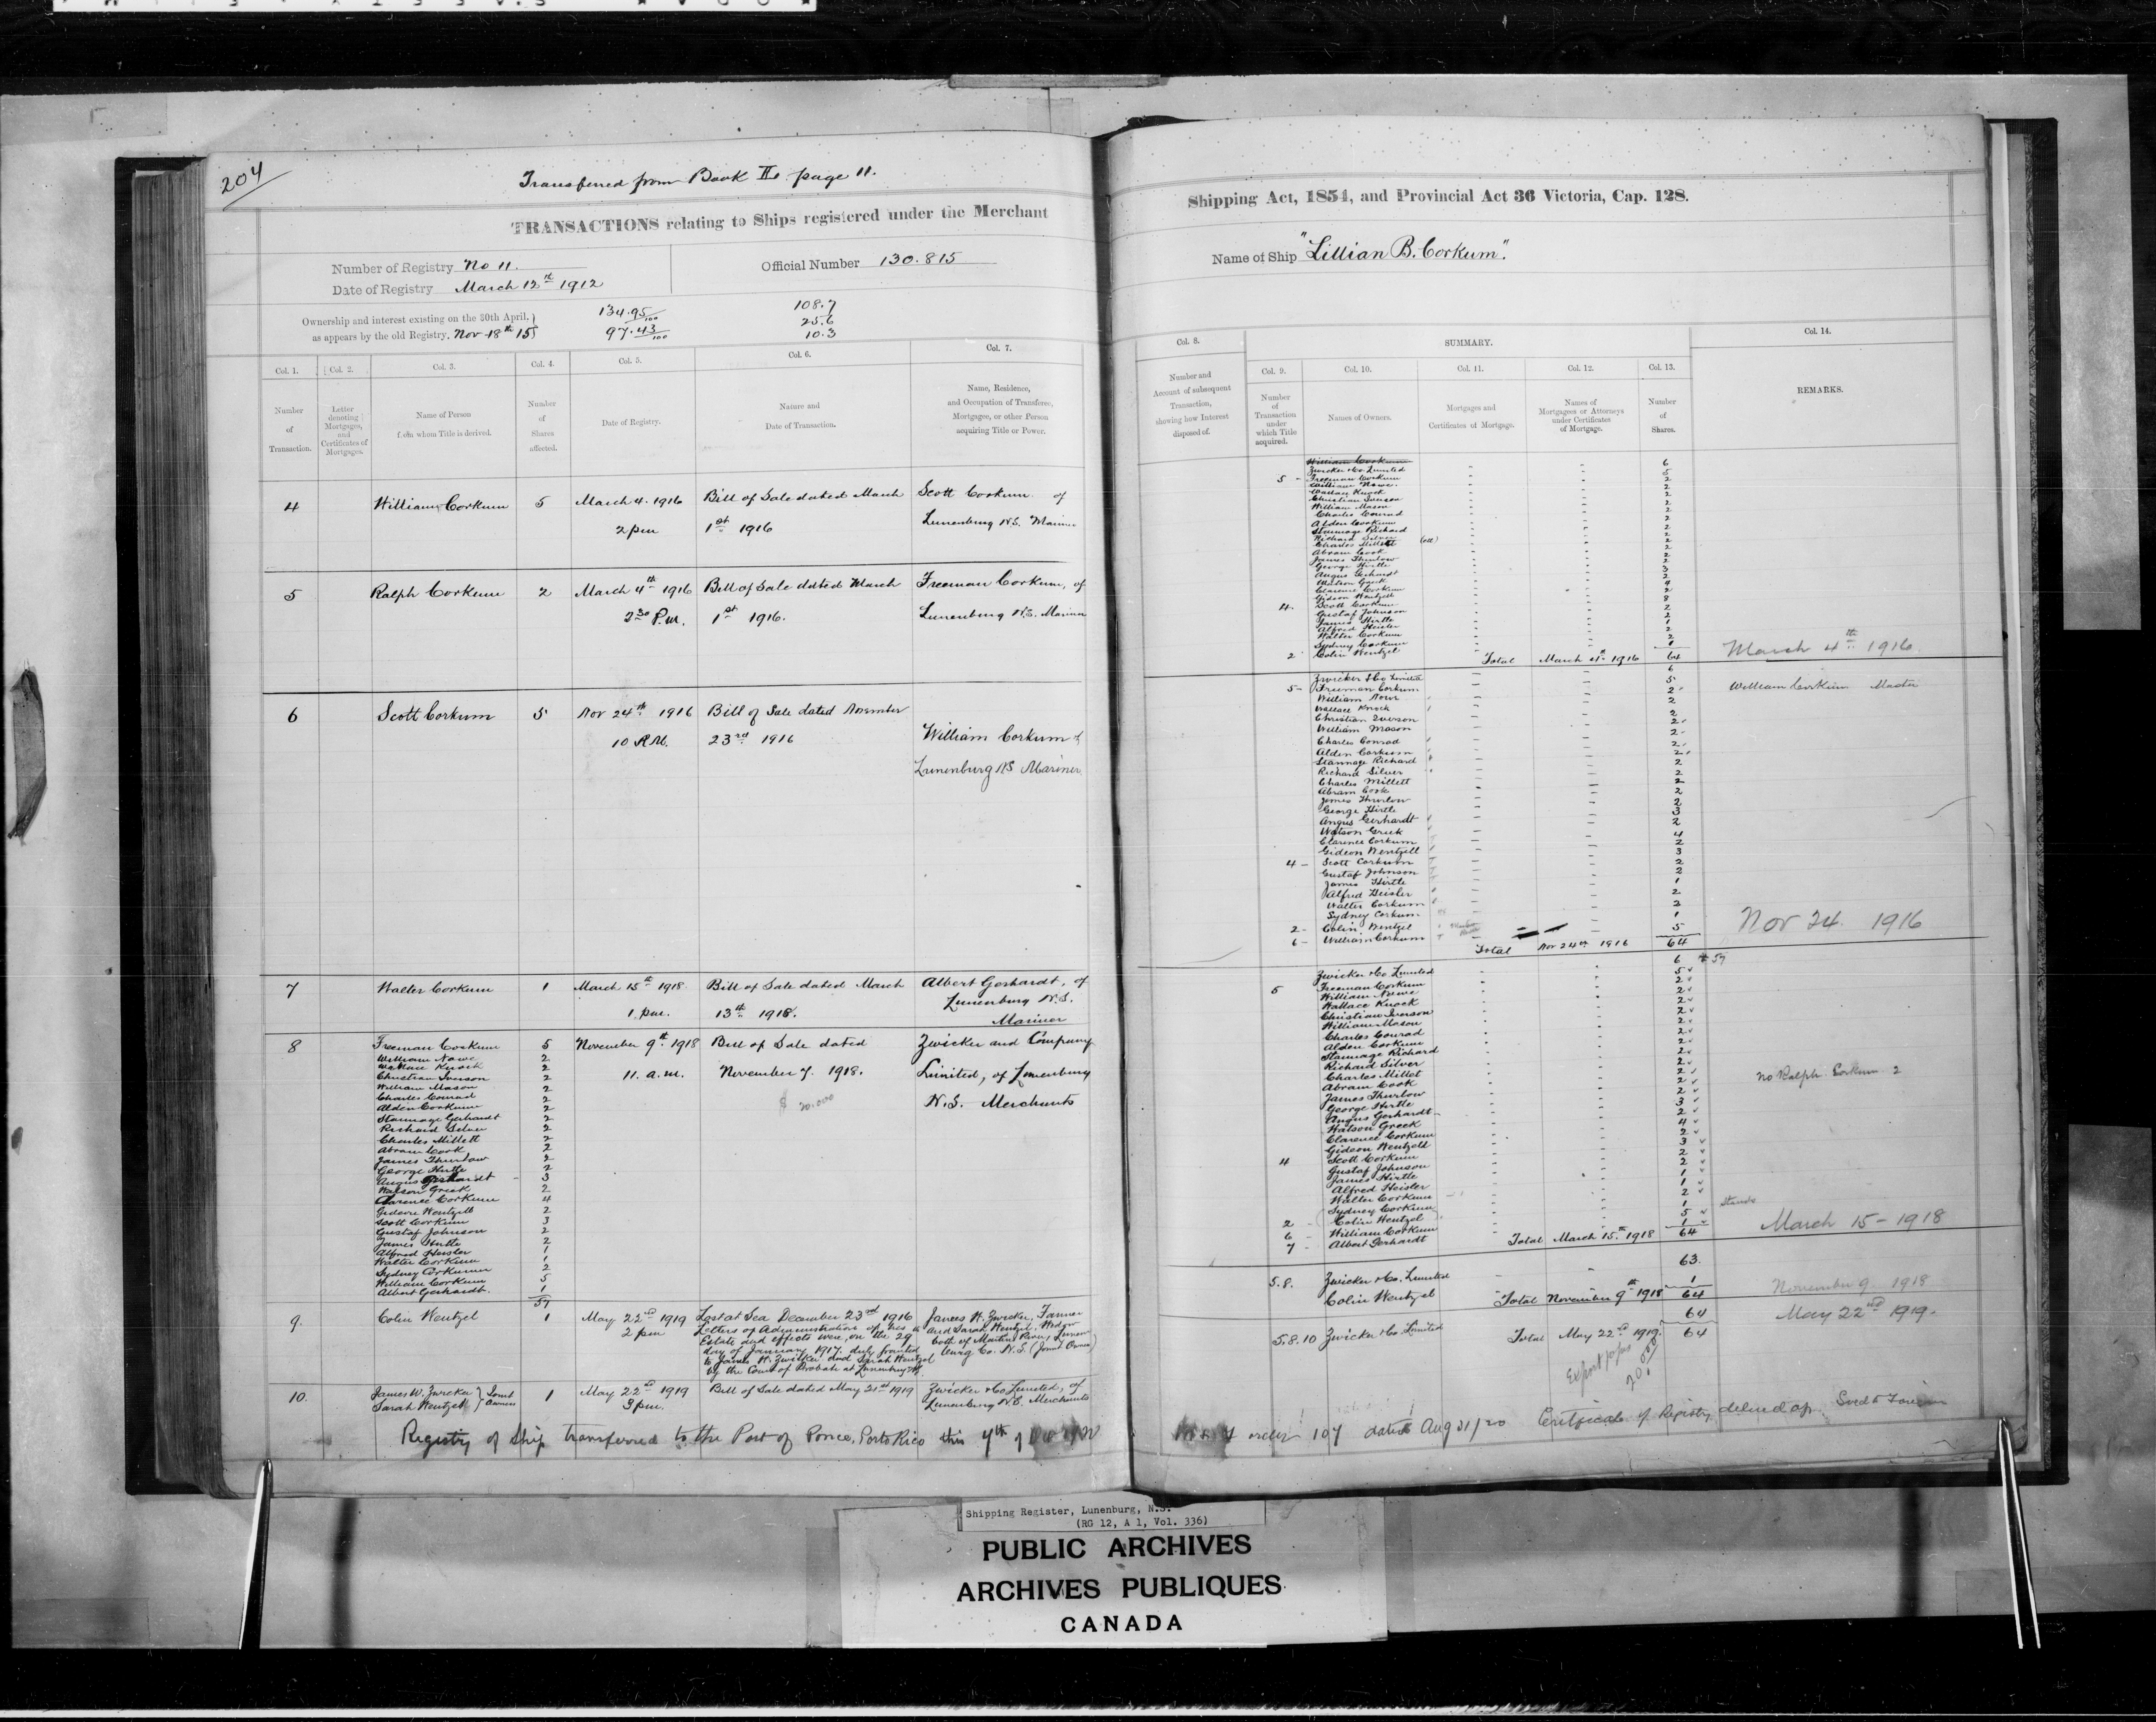 204
Transferred from Book II. page 11.
TRANSACTIONS relating to Ships registered under the Merchant
Number of Registry No 11.
Date of Registry March 12th 1912
Official Number 130.815
Ownership and interest existing on the 30th April,
as appears by the old Registry. Nov 18th 15
134.95/100
97.43/100
108.7
25.6
10.3
Col. 1.
Col. 2.
Col. 3.
Col. 4.
Col. 5.
Col. 6.
Col. 7.
Number of Transaction.
Letter denoting Mortgages, and Certificates of Mortgages.
Name of Person from whom Title is derived.
Number of Shares affected.
Date of Registry.
Nature and Date of Transaction.
Name, Residence, and Occupation of Transferee, Mortgagee, or other Person acquiring Title or Power.
4 William Corkum 5 March 4. 1916 Bill of Sale dated March Scott Corkum of
2 pm 1st 1916 Lunenburg N.S. Mariner
5 Ralph Corkum 2 March 4th 1916 Bill of Sale dated March Freeman Corkum, of
2 30 P.m. 1st 1916. Lunenburg N.S. Mariner
6 Scott Corkum 5 Nov 24th 1916 Bill of Sale dated November
10 A.M. 23rd 1916 William Corkum of
Lunenburg NS Mariner
7 Walter Corkum 1 March 15th 1918 Bill of Sale dated March Albert Gerhardt, of
1. pm. 13th 1918. Lunenburg N.S.
Mariner
8 Freeman Corkum 5 November 9th 1918 Bill of Sale dated Zwicker and Company
11. a.m. November 7. 1918. Limited, of Lunenburg
$ 20.000 N.S. Merchants
William Nowe 2
Wallace Knock 2
Christian Iverson 2
William Mason 2
Charles Conrad 2
Alden Corkum 2
Stannage Gerhardt 2
Richard Silver 2
Charles Millett 2
Abram Cook 2
James Thurlow 2
George Hirtle 2
Angus Gerhardt 3
Watson Greek 2
Clarence Corkum 4
Gideon Wentzell 2
Scott Corkum 3
Gustaf Johnson 2
James Hirtle 2
Alfred Heisler 1
Walter Corkum 1
Sydney Corkum 2
William Corkum 5
Albert Gerhardt. 1
57
9. Colin Wentzel 1 May 22nd 1919 Lost at Sea December 23rd 1916 James W. Zwicker, Farmer
2 pm Letters of Administration of his and Sarah Wentzel, Widow
Estate and effects were, on the 29 both of Martins River, Lunen
day of January 1917, duly granted burg Co. N.S. (Joint Owners)
to James W. Zwicker and Sarah Wentzel
by the Court of Probate at Lunenburg NS.
10. James W. Zwicker Joint 1 May 22nd 1919 Bill of Sale dated May 21st 1919 Zwicker & Co Limited, of
Sarah Wentzell Owners 3 pm. Lunenburg N.S. Merchants
Registry of Ship transferred to the Port of Ponce, Porto Rico this 7th of
Shipping Act, 1854, and Provincial Act 36 Victoria, Cap. 128.
Name of Ship "Lillian B. Corkum".
Col. 8.
SUMMARY.
Col. 14.
Col. 9.
Col. 10.
Col. 11.
Col. 12.
Col. 13.
Number and Account of subsequent Transaction, showing how Interest disposed of.
Number of Transaction under which Title acquired.
Names of Owners.
Mortgages and Certificates of Mortgage.
Names of Mortgagees or Attorneys under Certificates of Mortgage.
Number of Shares.
REMARKS.
William Corkum
Zwicker & Co. Limited 6
5 - Freeman Corkum 5
William Nowe 2
Wallace Knock 2
Christian Iverson 2
William Mason 2
Charles Conrad 2
Alden Corkum 2
Stannage Richard 2
Richard Silver 2
Charles Millett 2
Abram Cook 2
James Thurlow 2
George Hirtle 2
Angus Gerhardt 3
Watson Greek 2
Clarence Corkum 4
Gideon Wentzell 2
4. Scott Corkum
Gustaf Johnson 2
James Hirtle 2
Alfred Heisler 1
Walter Corkum 2
Sydney Corkum 2
2 Colin Wentzel 1
Total March 4th 1916 64 March 4th 1916
Zwicker & Co Limited 6
5 - Freeman Corkum 5
William Nowe 2
Wallace Knock 2
Christian Iverson 2
William Mason 2
Charles Conrad 2
Alden Corkum 2
Stannage Richard 2
Richard Silver 2
Charles Millett 2
Abram Cook 2
James Thurlow 2
George Hirtle 2
Angus Gerhardt 3
Watson Greek 2
Clarence Corkum 4
Gideon Wentzell 2
4 - Scott Corkum 3
Gustaf Johnson 2
James Hirtle 2
Alfred Heisler 1
Walter Corkum 2
Sydney Corkum 2
2 - Colin Wentzel 1
6 - William Corkum 5
Total Nov 24th 1916 64
William Corkum Master
Nov 24. 1916
Zwicker & Co. Limited 6
5 Freeman Corkum 5
William Nowe 2
Wallace Knock 2
Christian Iverson 2
William Mason 2
Charles Conrad 2
Alden Corkum 2
Stannage Richard 2
Richard Silver 2
Charles Millet 2
Abram Cook 2
James Thurlow 2
George Hirtle 2
Angus Gerhardt 3
Watson Greek 2
Clarence Corkum 4
Gideon Wentzell 2
4 Scott Corkum 3
Gustaf Johnson 2
James Hirtle 2
Alfred Heisler 1
Walter Corkum 1
Sydney Corkum 2
2 - Colin Wentzel 1
6 - William Corkum 5
7 - Albert Gerhardt 1
Total March 15th 1918 64
No Ralph Corkum 2
March 15 - 1918
5.8. Zwicker & Co. Limited 63.
Colin Wentzel 1
Total November 9th 1918 64 November 9 1918
5.8.10 Zwicker & Co. Limited 64
Total May 22nd 1919. 64 May 22nd 1919.
order 107 dated Aug 31/20 Certificate of Registry delivered up. Sold to Foreign
Shipping Register, Lunenburg, N.S.
(RG 12, A 1, Vol. 336)
PUBLIC ARCHIVES
ARCHIVES PUBLIQUES
CANADA